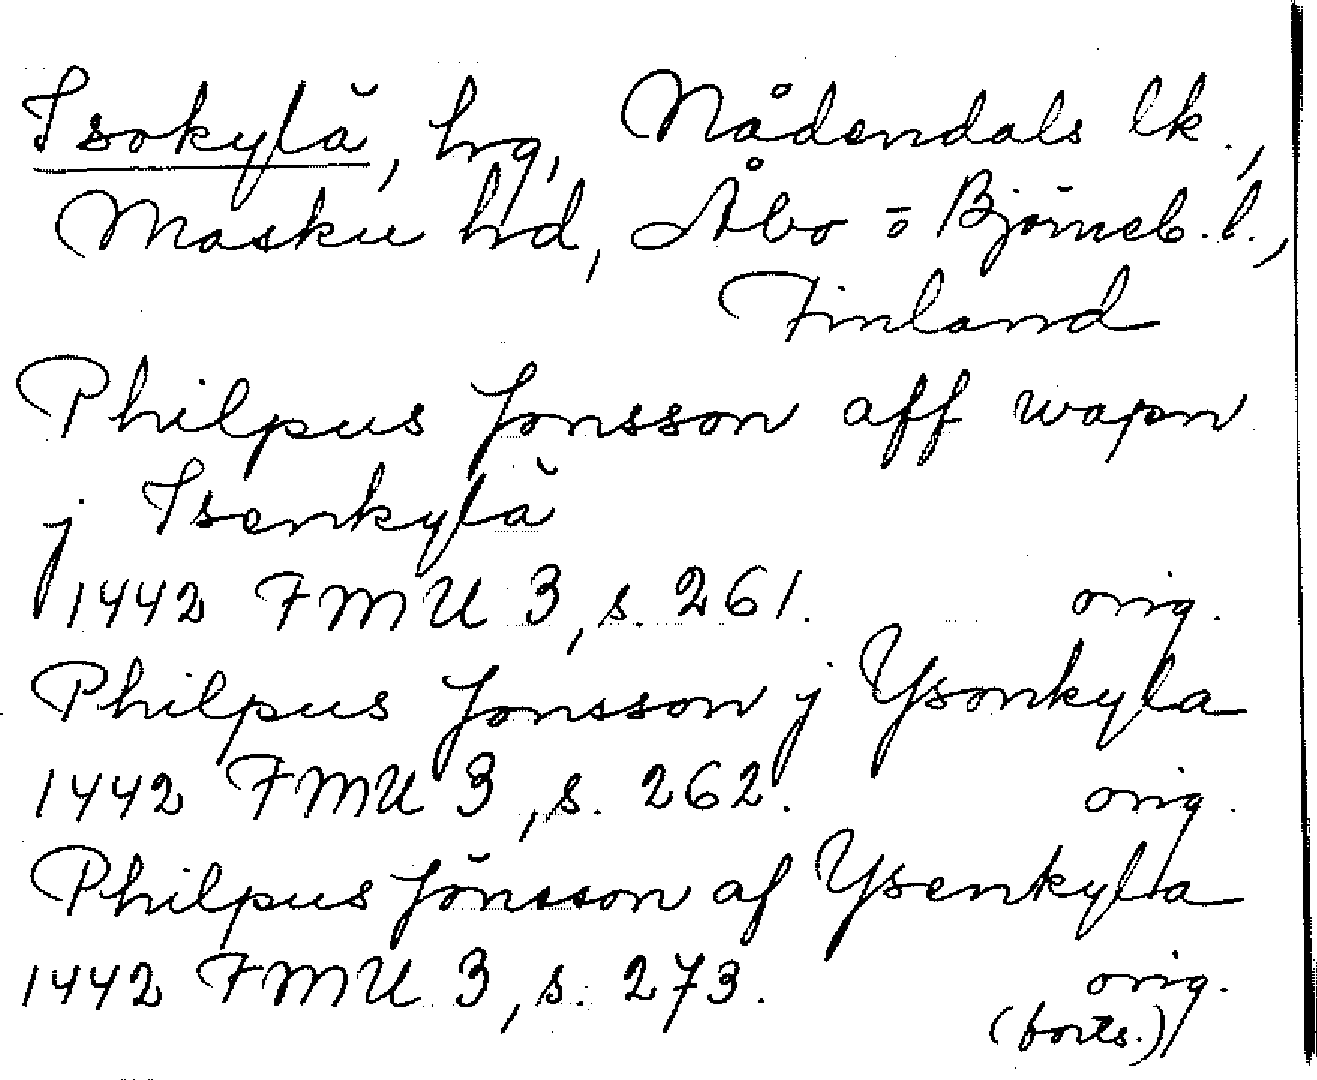 Isokylä, hg, Nådendals lk.,
Masku hd, Åbo o Björneb. l.,
Finland
Philpus Jonsson aff wapn
j Isenkylä
1442 FMU 3, s. 261. orig.
Philpus Jonsson j Ysonkyla
1442 FMU 3, s. 262. orig.
Philpus Jönsson af Ysenkyla
1442 FMU 3, s. 273. orig.
(forts.)